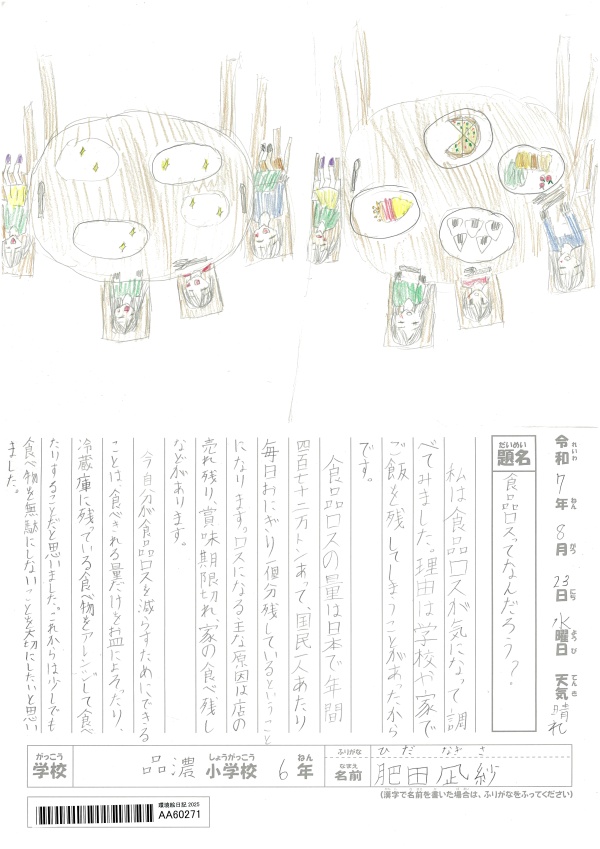 令和7年8月23日水曜日 天気 晴れ
れいわ ねん がつ にち ようび てんき
だいめい
題名
食品ロスってなんだろう？
私は食品ロスが気になって調
べてみました。理由は学校や家で
ご飯を残してしまうことがあったから
です。
食品ロスの量は日本で年間
四百七十二万トンあって、国民一人あたり
毎日おにぎり一個分残しているということ
になります。ロスになる主な原因は店の
売れ残り、賞味期限切れ、家の食べ残し
などがあります。
今自分が食品ロスを減らすためにできる
ことは、食べきれる量だけをお皿によそったり、
冷蔵庫に残っている食べ物をアレンジして食べ
たりすることだと思いました。これからは少しでも
食べ物を無駄にしないことを大切にしたいと思い
ました。
がっこう しょうがっこう ねん
学校 品濃小学校 6年
ふりがな ひだ なぎさ
なまえ
名前 肥田凪紗
(漢字で名前を書いた場合は、ふりがなをふってください)
環境絵日記2025
AA60271